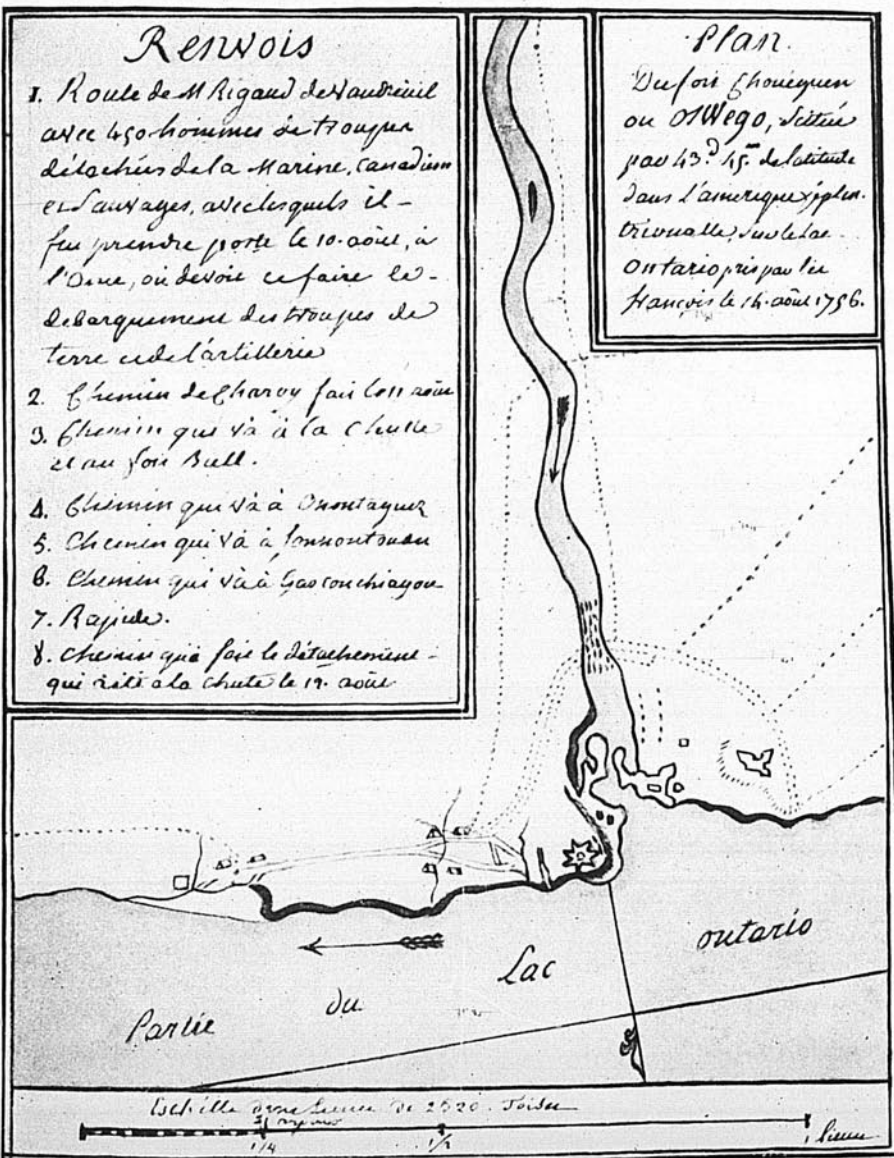 Renvois
1. Route de M Rigaud de Vaudreuil
avec 450 hommes de troupes
détachées de la Marine, Canadiens
et Sauvages, avec lesquels il
fut prendre poste le 10. août, à
l'Anse, où devoit ce faire le
debarquement des troupes de
terre et de l'artillerie
2. Chemin de Charoy fait le 11 août
3. Chemin qui va à la Chutte
et au fort Bull.
4. Chemin qui va à Onontaguez
5. Chemin qui va à
6. Chemin qui va à Gasconchiagou
7. Rapide.
8. Chemin que fait le détachement
qui a été à la chute le 19. août
Plan.
Du fort Choueguen
ou OSWego, située
par 43.d 45.m de latitude
dans l'amerique septen-
trionalle, sur le lac
Ontario pris par les
françois le 14. août 1756.
Partie du Lac ontario
Eschelle d'une lieue de 2520. Toises
21 arpens
1/4 1/2 1 lieue